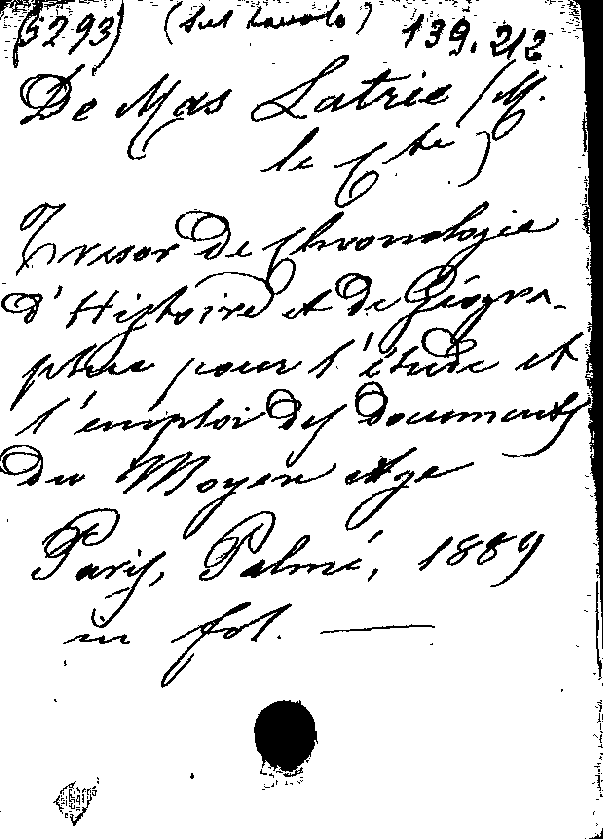 (5293) (sul tavolo) 139.212
De Mas Latrie (M.
le Cte)
Trésor de Chronologie
d'Histoire et de Géogra-
phie pour l'étude et
l'emploi des documents
du Moyen Age
Paris, Palmé, 1889
in fol.